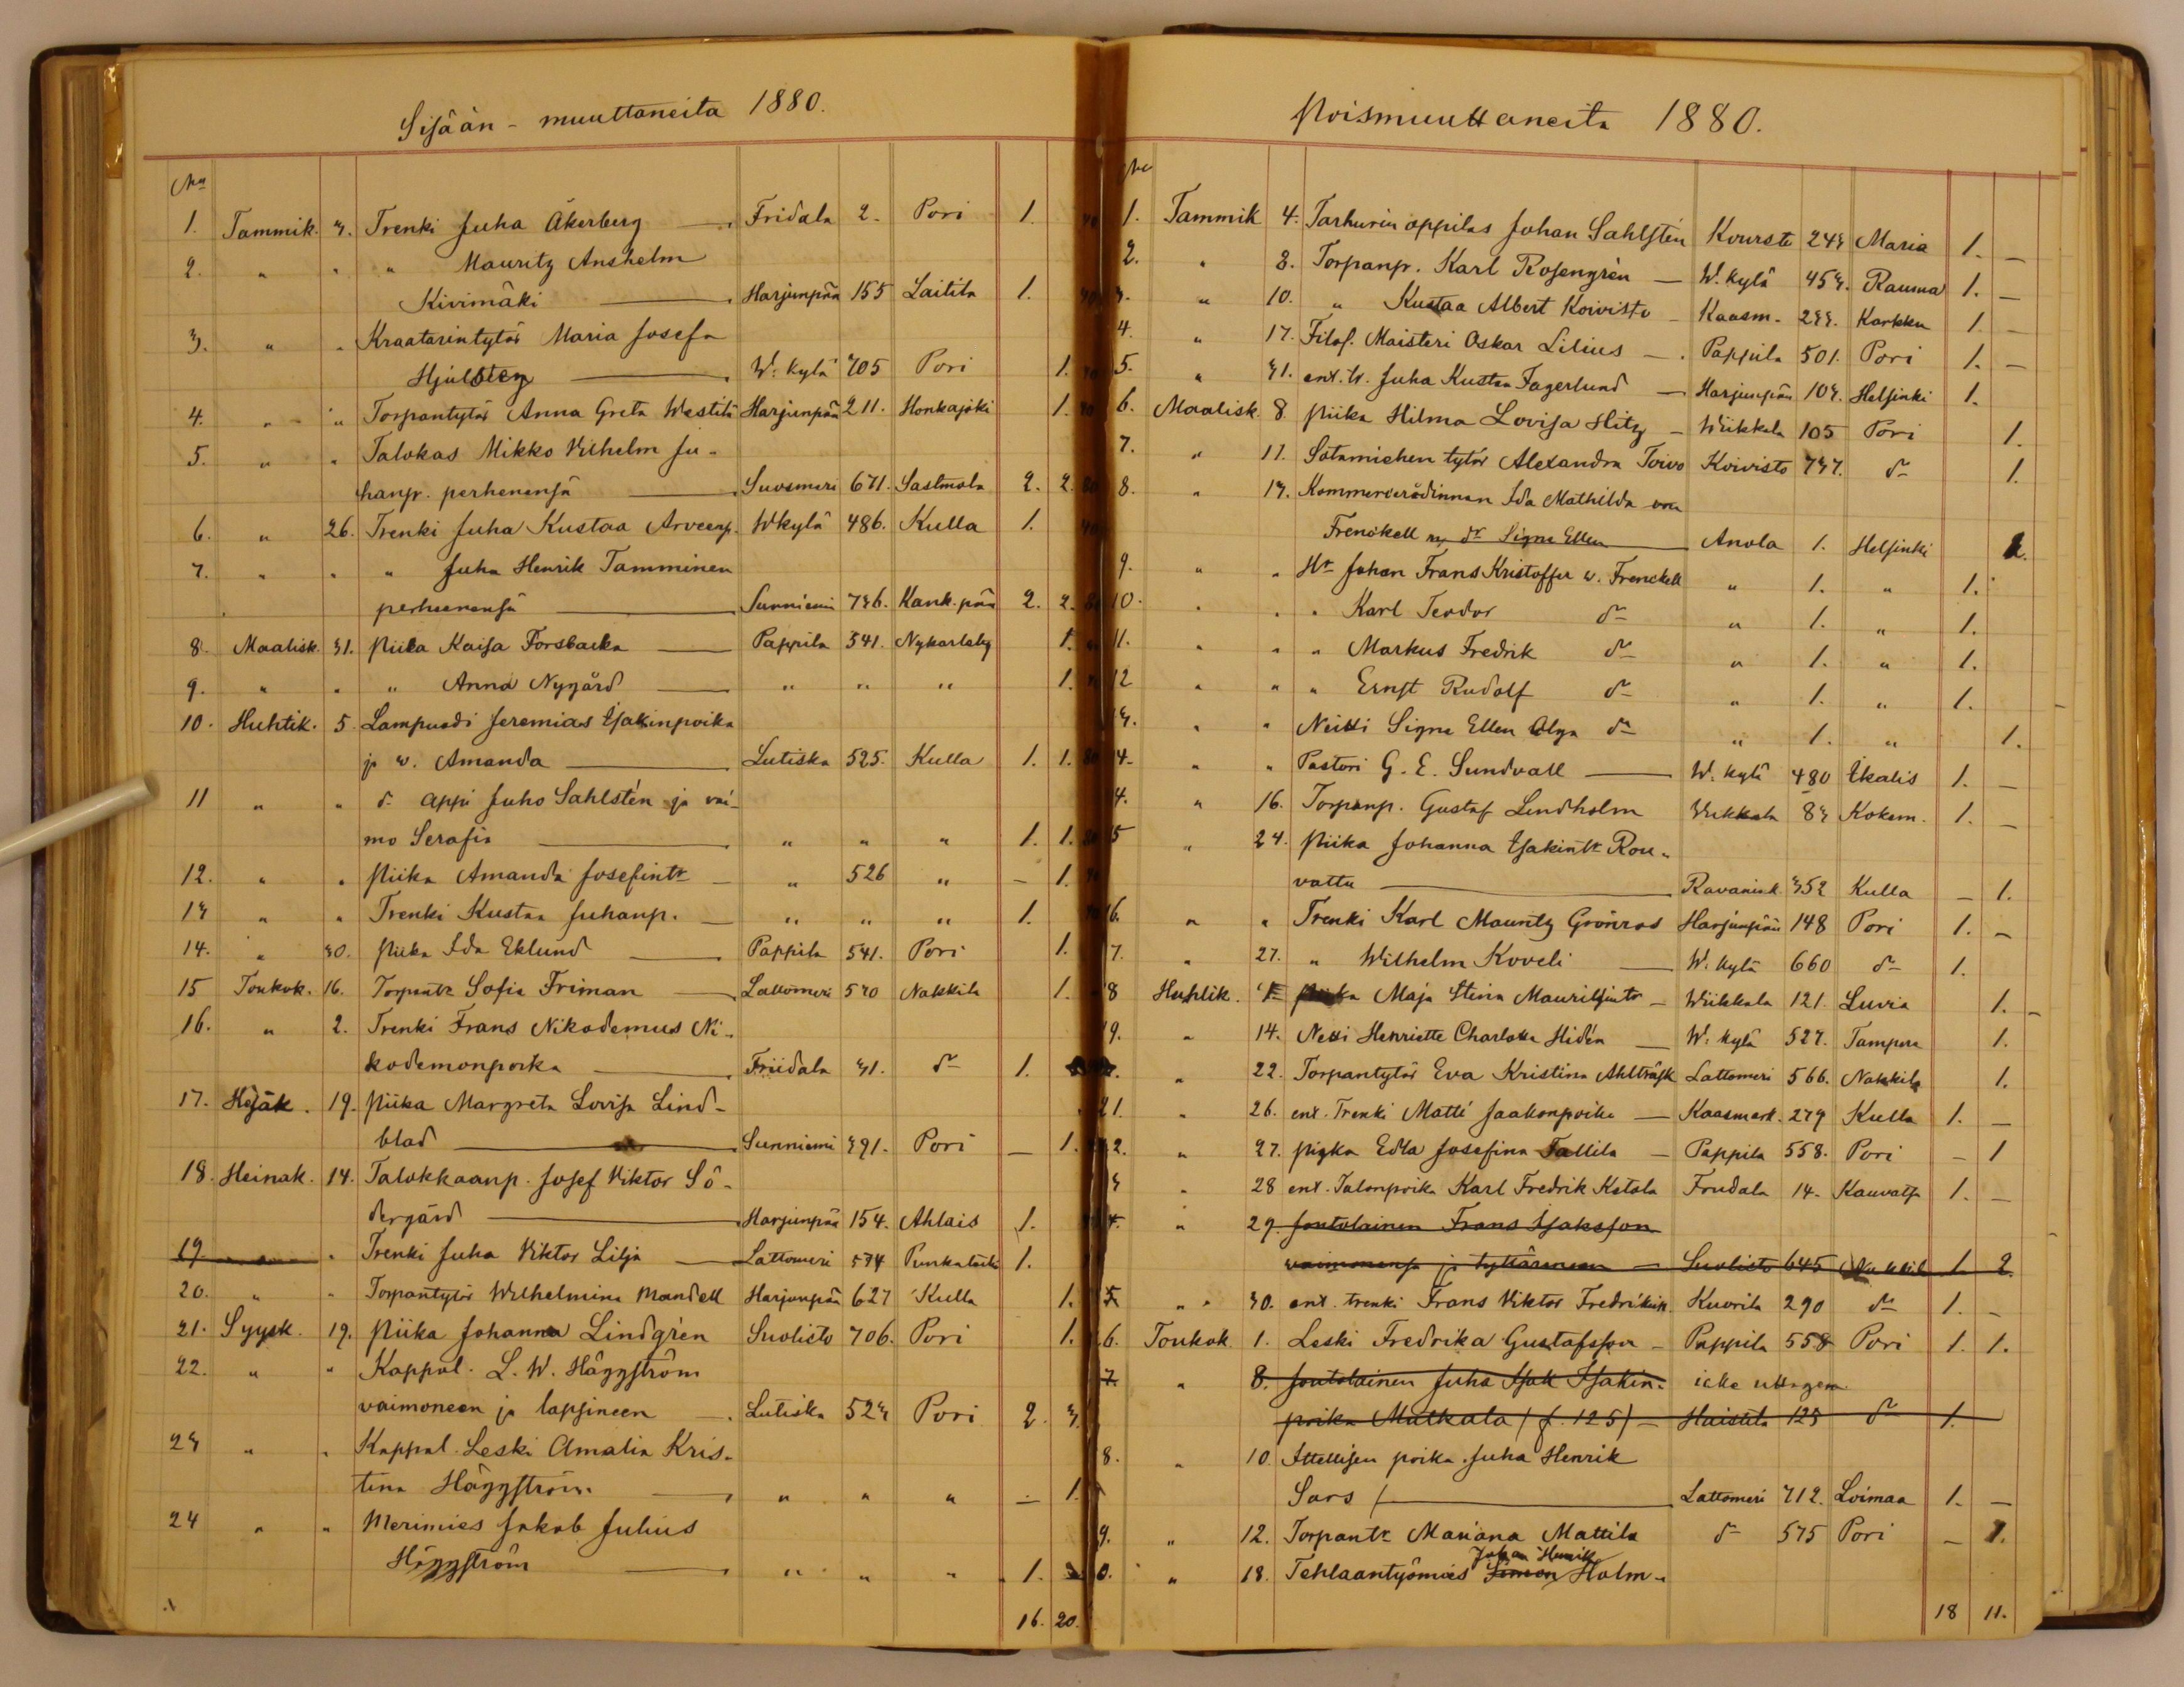 Sisään - muuttaneita 1880.
No
1. Tammik. 3. Trenki Juha Åkerberg — Fridala 2. Pori 1.
2. " " " Mauritz Anshelm
Kivimäki — Harjunpää 155 Laitila 1.
3. " " Kraatarintytär Maria Josefa
W. kylä 705 Pori 1.
4. " " Torpantytär Anna Greta Westilä Harjunpää 211. Honkajoki 1.
5. " " Talokas Mikko Vilhelm Ju-
hanp. perhenensä — Suosmeri 671. Sastmola 2. 2.
6. " 26. Trenki Juha Kustaa Arveenp. Wkylä 486. Kulla 1.
7. " " " Juha Henrik Tamminen
perheenensä — Sunniemi 736. Kank.pää 2. 2.
8. Maalisk. 31. Piika Kaisa Forsbacka — Pappila 541. Nykarleby 1.
9. " " " Anna Nygård — " " " 1.
10. Huhtik. 5. Lampuodi Jeremias Isakinpoika
ja w. Amanda — Lutiska 525. Kulla 1. 1.
11 " " d:o appi Juho Sahlstén ja vai-
mo Serafia — " " " 1. 1.
12. " " Piika Amanda Josefintr — " 526 " — 1.
13 " " Trenki Kustaa Juhanp. — " " " 1.
14. " 30. Piika Ida Eklund — Pappila 541. Pori 1.
15 Toukok. 16. Torpantr Sofia Friman — Lattomeri 570 Nakkila 1.
16. " 2. Trenki Frans Nikodemus Ni-
kodemonpoika — Friidala 31. d:o 1.
17. Kesäk. 19. Piika Margreta Lovisa Lind-
blad — Sunniemi 391. Pori — 1.
18. Heinak. 14. Talokkaanp. Josef Viktor Sö-
dergård — Harjunpää 154. Ahlais 1.
19 " " Trenki Juha Viktor Lilja — Lattomeri 574 1.
20. " " Torpantytär Wilhelmina Mandell Harjunpää 627 Kulla 1.
21. Syysk. 19. Piika Johanna Lindgrén Suolisto 706. Pori 1.
22. " " Kappal. L. W. Häggström
vaimoneen ja lapsineen — Lutiska 523 Pori 2. 3.
23 " " Kappal. Leski Amalia Kris-
tina Häggström — " " " — 1.
24 " " Merimies Jakob Julius
Häggström — " " " 1.
16. 20.
Poismuuttaneita 1880.
No
1. Tammik 4. Tarhurin oppilas Johan Sahlstén Kourste 243 Maria 1. —
2. " 8. Torpanp. Karl Rosengrén — W. kylä 453. Rauma 1. —
3. " 10. " Kustaa Albert Koivisto — Kaasm. 233. Karkku 1. —
4. " 17. Filos. Maisteri Oskar Lilius — Pappila 501. Pori 1. —
5. " 31. ent. Juha Kustaa Fagerlund — Harjunpää 103. Helsinki 1.
6. Maalisk. 8. Piika Hilma Lovisa Hitz — Wiikkala 105 Pori 1.
7. " 11. Sotamiehen tytär Alexandra Toivo Koivisto 737. d:o 1.
8. " 13. Kommerserådinnan Ida Mathilda von
Frenckell d:o Signe Ellen — Anola 1. Helsinki
9. " " Hr Johan Frans Kristoffer v. Frenckell " 1. " 1.
10. " " " Karl Teodor d:o " 1. " 1.
11. " " " Markus Fredrik d:o " 1. " 1.
12 " " " Ernst Rudolf d:o " 1. " 1.
13. " " Neitti Signe Ellen Olga d:o " 1. " 1.
4. " " Pastori G. E. Sundvall — W. kylä 480 Ikalis 1. —
4. " 16. Torpanp. Gustaf Lindholm Wiikkala 83 Kokem. 1. —
5 " 24. Piika Johanna Isakintr Rou-
vattu — Ravanink 352 Kulla — 1.
6. " " Trenki Karl Mauritz Grönroos Harjunpää 148 Pori 1. —
7. " 27. " Wilhelm Koveli — W. kylä 660 d:o 1.
8 Huhtik. Piika Maja Stina — Wiikkala 121. Luvia 1.
9. " 14. Neiti Henriette Charlotta Hidén — W. kylä 527. Tampere 1.
" 22. Torpantytär Eva Kristina Ahlträsk Lattomeri 566. Nakkila 1.
21. " 26. ent. Trenki Matti Jaakonpoika — Kaasmark. 279 Kulla 1. —
2. " 27. Piyka Edla Josefina Tallila — Pappila 558. Pori — 1
3 " 28 ent. Talonpoika Karl Fredrik Ketola Friidala 14. Kauvatsa 1. —
4. " 29. Joutolainen Frans Isaksson
vaimonensa ja tyttärineen — Suolisto 645 Nakkila 1 2.
5. " 30. ent. trenki Frans Viktor Fredrikinp. Kuorila 290 d:o 1. —
6. Toukok. 1. Leski Fredrika Gustafsson — Pappila 558 Pori 1. 1.
7. " 8. Joutolainen Juha Isak Isakin- icke uttagen
poika Matkala (f. 125) — Haistila 125 d:o 1.
8. " 10. Itsellisen poika Juha Henrik
Sars — Lattomeri 712. Loimaa 1. —
9. " 12. Torpantr Mariana Mattila d:o 575 Pori — 1.
Johan Henrik
0. " 18. Tehlaantyömies Simon Holm-
18 11.